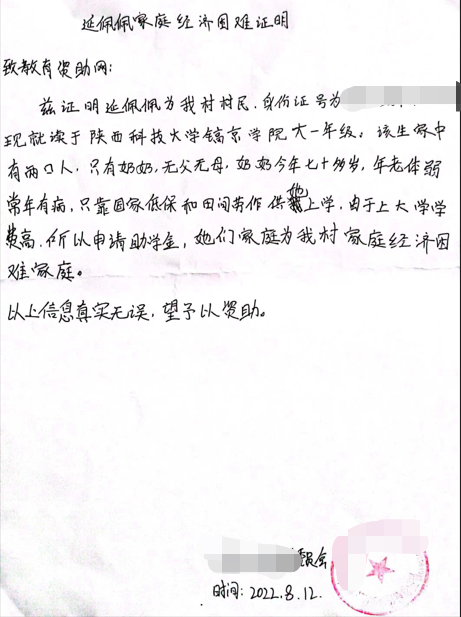 延佩佩家庭经济困难证明
致教育资助网:
兹证明延佩佩为我村村民,身份证号为
现就读于陕西科技大学镐京学院大一年级。该生家中
有两口人,只有奶奶,无父无母,奶奶今年七十多岁,年老体弱
常年有病,只靠国家低保和田间劳作供她上学,由于上大学学
费高,所以申请助学金,她们家庭为我村家庭经济困
难家庭。
以上信息真实无误,望予以资助。
委员会
时间:2022.8.12.